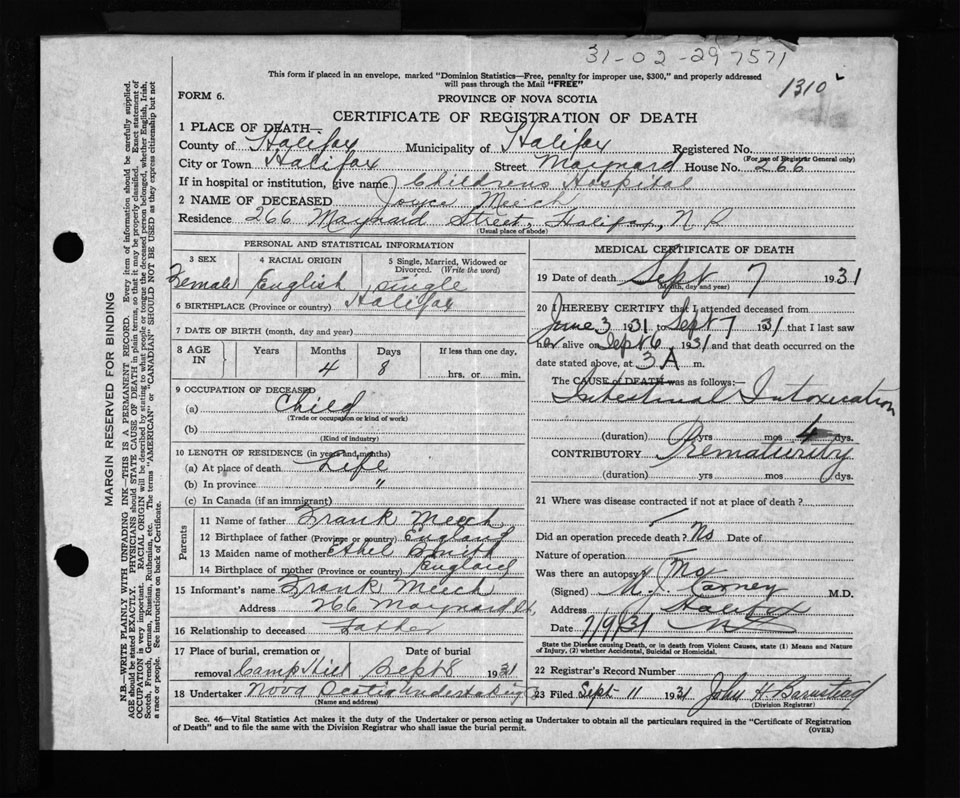 31-02-297571
1310
This form if placed in an envelope, marked "Dominion Statistics—Free, penalty for improper use, $300," and properly addressed
will pass through the Mail "FREE"
FORM 6.
PROVINCE OF NOVA SCOTIA
CERTIFICATE OF REGISTRATION OF DEATH
1 PLACE OF DEATH—
County of Halifax Municipality of Halifax Registered No.
(For use of Registrar General only)
City or Town Halifax Street Maynard House No. 266
If in hospital or institution, give name Childrens Hospital
2 NAME OF DECEASED Joyce Meech
Residence 266 Maynard Street, Halifax, N.
(Usual place of abode)
PERSONAL AND STATISTICAL INFORMATION
3 SEX 4 RACIAL ORIGIN 5 Single, Married, Widowed or
Divorced. (Write the word)
Female English Single
6 BIRTHPLACE (Province or country) Halifax
7 DATE OF BIRTH (month, day and year)
8 AGE IN Years Months Days If less than one day,
4 8 hrs. or min.
9 OCCUPATION OF DECEASED
(a) Child
(Trade or occupation or kind of work)
(b)
(Kind of industry)
10 LENGTH OF RESIDENCE (in years and months)
(a) At place of death Life
(b) In province "
(c) In Canada (if an immigrant)
Parents
11 Name of father Frank Meech
12 Birthplace of father (Province or country) England
13 Maiden name of mother Ethel Smith
14 Birthplace of mother (Province or country) England
15 Informant's name Frank Meech
Address 266 Maynard St.
16 Relationship to deceased Father
17 Place of burial, cremation or Date of burial
removal Camp Hill Sept 8 1931
18 Undertaker Nova Scotia Undertaking
(Name and address)
MEDICAL CERTIFICATE OF DEATH
19 Date of death Sept 7 1931
(Month, day and year)
20 I HEREBY CERTIFY that I attended deceased from
June 3 1931 to Sept 7 1931 that I last saw
her alive on Sept 6 1931 and that death occurred on the
date stated above, at 3 A m.
The CAUSE OF DEATH was as follows:—
Intestinal Intoxication
(duration) yrs mos 4 dys.
CONTRIBUTORY Prematurity
(duration) yrs mos dys.
21 Where was disease contracted if not at place of death?
Did an operation precede death? No Date of
Nature of operation
Was there an autopsy? No
(Signed) M. J. Carney M.D.
Address Halifax
Date 7/9/31 NS
State the Disease causing Death, or in death from Violent Causes, state (1) Means and Nature
of Injury, (2) whether Accidental, Suicidal or Homicidal.
22 Registrar's Record Number
23 Filed Sept 11 1931 John H. Barnstead
(Division Registrar)
Sec. 46—Vital Statistics Act makes it the duty of the Undertaker or person acting as Undertaker to obtain all the particulars required in the "Certificate of Registration
of Death" and to file the same with the Division Registrar who shall issue the burial permit.
(OVER)
MARGIN RESERVED FOR BINDING
N.B.—WRITE PLAINLY WITH UNFADING INK—THIS IS A PERMANENT RECORD. Every item of information should be carefully supplied.
AGE should be stated EXACTLY. PHYSICIANS should STATE CAUSE OF DEATH in plain terms, so that it may be properly classified. Exact statement of
OCCUPATION is very important. RACIAL ORIGIN will be described by stating to what people or tongue the deceased person belonged, whether English, Irish,
Scotch, French, German, Russian, Ruthenian, etc. The terms "AMERICAN" or "CANADIAN" SHOULD NOT BE USED as they express citizenship but not
a race or people. See instructions on back of Certificate.